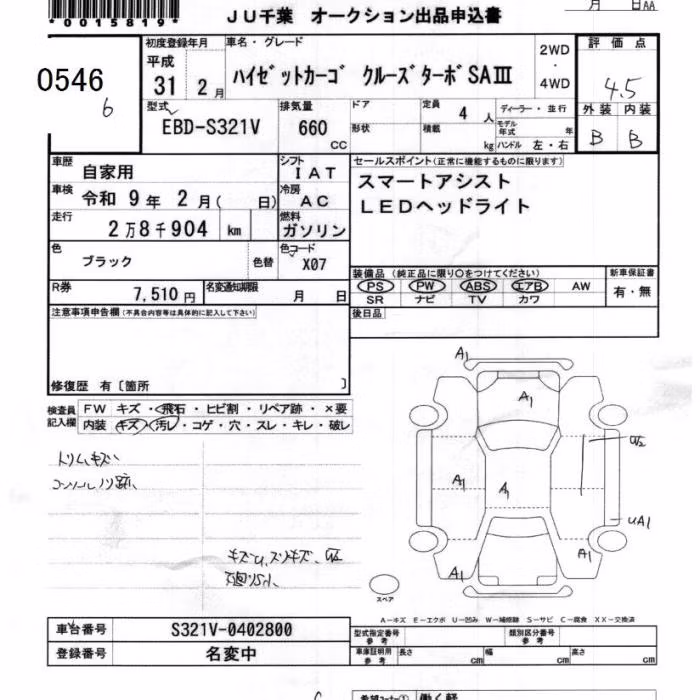 *0015819*
JU千葉 オークション出品申込書
月 日AA
0546
6
初度登録年月
平成
31 2月
車名・グレード
ハイゼットカーゴ クルーズターボSAⅢ
2WD
・
4WD
評価点
4.5
外装 内装
B B
型式
EBD-S321V
排気量
660
CC
ドア
形状
定員
4 人
積載
kg
ディーラー・並行
モデル年式 年
ハンドル 左・右
車歴
自家用
シフト
IAT
セールスポイント(正常に機能するものに限ります)
スマートアシスト
LEDヘッドライト
車検
令和 9年 2月( 日)
冷房
AC
走行
2万8千904 km
燃料
ガソリン
色
ブラック
色替
色コード
X07
装備品(純正品に限り○をつけてください)
PS PW ABS エアB AW
SR ナビ TV カワ
新車保証書
有・無
R券
7,510円
名変通知期限
月 日
後日品
注意事項申告欄(不具合内容等は具体的に記入して下さい)
修復歴 有〔箇所 〕
検査員記入欄
FW キズ・飛石・ヒビ割・リペア跡・×要
内装 キズ・汚レ・コゲ・穴・スレ・キレ・破レ
トリムキズ
コンソールノリ跡
A1
A1
A1
A1
UA1
A1
A1
スペア
A−キズ E−エクボ U−凹み W−補修跡 S−サビ C−腐食 XX−交換済
車台番号
S321V-0402800
登録番号
名変中
型式指定番号
参考
類別区分番号
参考
車庫証明用
参考
長さ cm
幅 cm
高さ cm
希望コーナー①
働く軽